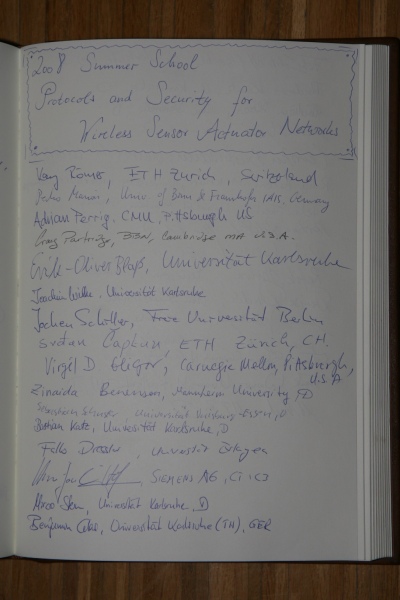 2008 Summer School
Protocols and Security for
Wireless Sensor Actuator Networks
Kay Römer, ETH Zurich, Switzerland
Pedro Marron, Univ. of Bonn & Fraunhofer IAIS, Germany
Adrian Perrig, CMU, Pittsburgh US
Craig Partridge, BBN, Cambridge MA U.S.A.
Erik-Oliver Blaß, Universität Karlsruhe
Joachim Wilke, Universität Karlsruhe
Jochen Schiller, Freie Universität Berlin
Srdjan Čapkun, ETH Zürich, CH.
Virgil D Gligor, Carnegie Mellon, Pittsburgh,
U.S.A
Zinaida Benenson, Mannheim University, D
Universität Duisburg-Essen, D
Bastian Katz, Universität Karlsruhe, D
Falko Dressler, Universität Erlangen
SIEMENS AG, CT IC3
Universität Karlsruhe, D
Benjamin Glas, Universität Karlsruhe (TH), GER